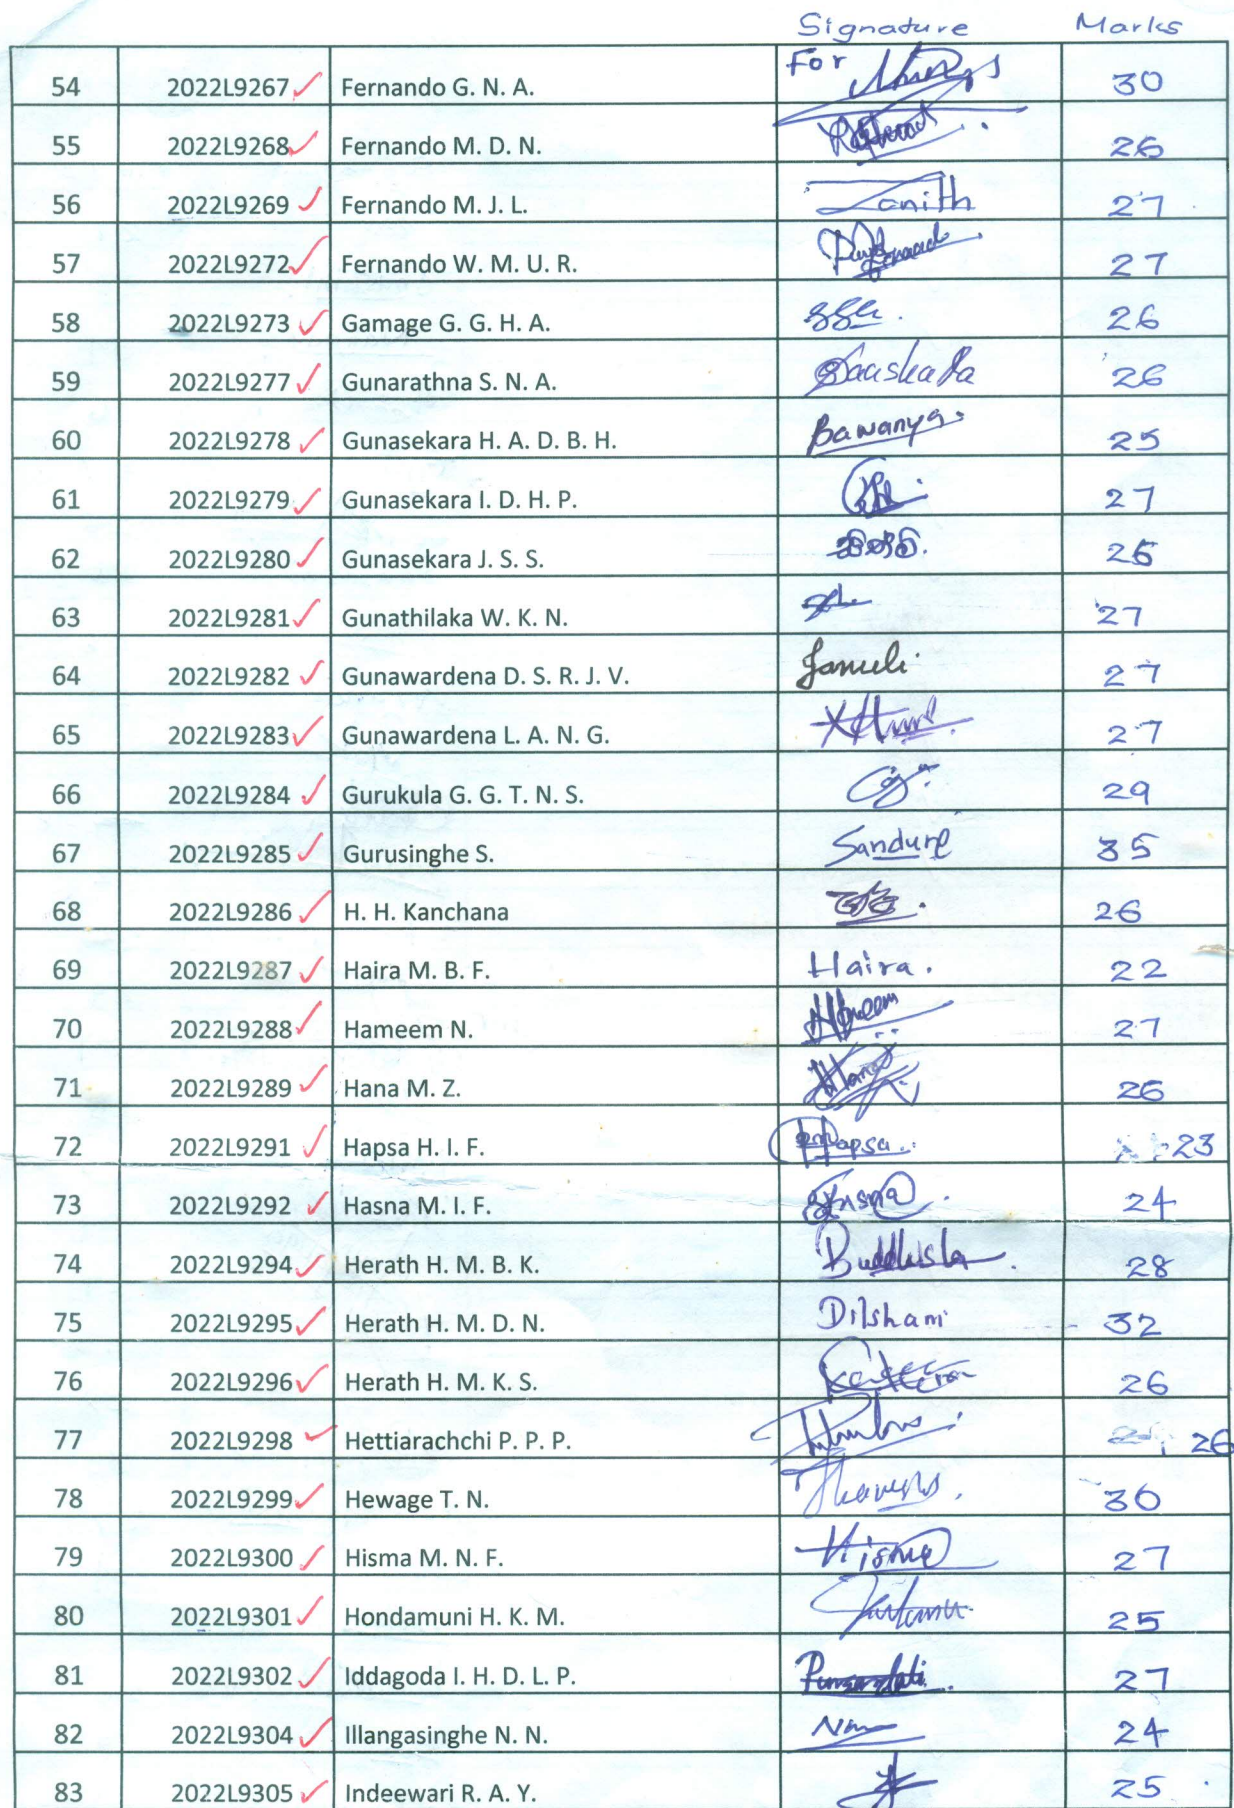 Signature Marks
54 2022L9267 Fernando G. N. A. For 30
55 2022L9268 Fernando M. D. N. 26
56 2022L9269 Fernando M. J. L. 27
57 2022L9272 Fernando W. M. U. R. 27
58 2022L9273 Gamage G. G. H. A. 26
59 2022L9277 Gunarathna S. N. A. 26
60 2022L9278 Gunasekara H. A. D. B. H. Bawanya 25
61 2022L9279 Gunasekara I. D. H. P. 27
62 2022L9280 Gunasekara J. S. S.
63 2022L9281 Gunathilaka W. K. N. 27
64 2022L9282 Gunawardena D. S. R. J. V. 27
65 2022L9283 Gunawardena L. A. N. G. 27
66 2022L9284 Gurukula G. G. T. N. S. 29
67 2022L9285 Gurusinghe S. 35
68 2022L9286 H. H. Kanchana 26
69 2022L9287 Haira M. B. F. Haira. 22
70 2022L9288 Hameem N. Hameem 27
71 2022L9289 Hana M. Z. Hana 26
72 2022L9291 Hapsa H. I. F. Hapsa 23
73 2022L9292 Hasna M. I. F. 24
74 2022L9294 Herath H. M. B. K. 28
75 2022L9295 Herath H. M. D. N. Dilshani 32
76 2022L9296 Herath H. M. K. S. 26
77 2022L9298 Hettiarachchi P. P. P. 26
78 2022L9299 Hewage T. N. 30
79 2022L9300 Hisma M. N. F. Hisma 27
80 2022L9301 Hondamuni H. K. M. 25
81 2022L9302 Iddagoda I. H. D. L. P. 27
82 2022L9304 Illangasinghe N. N. 24
83 2022L9305 Indeewari R. A. Y. 25